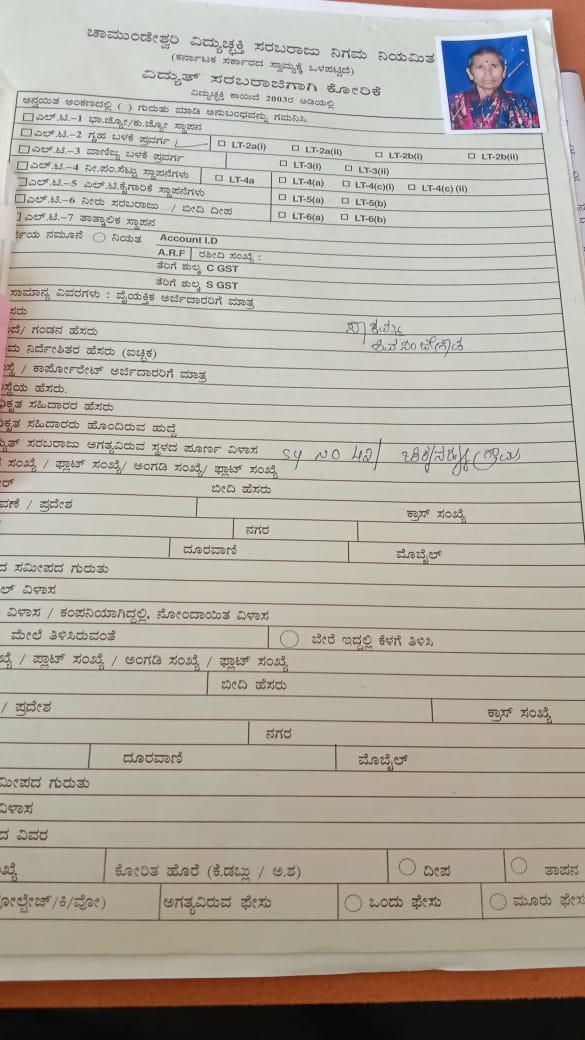 ಚಾಮುಂಡೇಶ್ವರಿ ವಿದ್ಯುಚ್ಛಕ್ತಿ ಸರಬರಾಜು ನಿಗಮ ನಿಯಮಿತ
(ಕರ್ನಾಟಕ ಸರ್ಕಾರದ ಸ್ವಾಮ್ಯಕ್ಕೆ ಒಳಪಟ್ಟಿದೆ)
ವಿದ್ಯುತ್ ಸರಬರಾಜಿಗಾಗಿ ಕೋರಿಕೆ
ವಿದ್ಯುಚ್ಛಕ್ತಿ ಕಾಯಿದೆ 2003ರ ಅಡಿಯಲ್ಲಿ
ಅನ್ವಯಿತ ಅಂಕಣದಲ್ಲಿ ( ) ಗುರುತು ಮಾಡಿ ಅನುಬಂಧವನ್ನು ಗಮನಿಸಿ.
ಎಲ್.ಟಿ.-1 ಭಾ.ಜ್ಯೋ/ಕು.ಜ್ಯೋ ಸ್ಥಾಪನ
ಎಲ್.ಟಿ.-2 ಗೃಹ ಬಳಕೆ ಪ್ರವರ್ಗ LT-2a(i) LT-2a(ii) LT-2b(i) LT-2b(ii)
ಎಲ್.ಟಿ.-3 ವಾಣಿಜ್ಯ ಬಳಕೆ ಪ್ರವರ್ಗ LT-3(i) LT-3(ii)
ಎಲ್.ಟಿ.-4 ನೀ.ಪಂ.ಸೆಟ್ಟು ಸ್ಥಾಪನೆಗಳು LT-4a LT-4(a) LT-4(c)(i) LT-4(c) (ii)
ಎಲ್.ಟಿ.-5 ಎಲ್.ಟಿ.ಕೈಗಾರಿಕೆ ಸ್ಥಾಪನೆಗಳು LT-5(a) LT-5(b)
ಎಲ್.ಟಿ.-6 ನೀರು ಸರಬರಾಜು / ಬೀದಿ ದೀಪ LT-6(a) LT-6(b)
ಎಲ್.ಟಿ.-7 ತಾತ್ಕಾಲಿಕ ಸ್ಥಾಪನ
ನಮೂನೆ ನಿಯತ Account I.D
A.R.F ರಶೀದಿ ಸಂಖ್ಯೆ :
ತೆರಿಗೆ ಶುಲ್ಕ C GST
ತೆರಿಗೆ ಶುಲ್ಕ S GST
ಸಾಮಾನ್ಯ ವಿವರಗಳು : ವೈಯಕ್ತಿಕ ಅರ್ಜಿದಾರರಿಗೆ ಮಾತ್ರ
ಸರು
ಗಂಡನ ಹೆಸರು
ನಿರ್ದೇಶಿತರ ಹೆಸರು (ಐಚ್ಛಿಕ)
/ ಕಾರ್ಪೋರೇಟ್ ಅರ್ಜಿದಾರರಿಗೆ ಮಾತ್ರ
ಸ್ಥೆಯ ಹೆಸರು.
ಕೃತ ಸಹಿದಾರರ ಹೆಸರು
ಕೃತ ಸಹಿದಾರರು ಹೊಂದಿರುವ ಹುದ್ದೆ
ಸರಬರಾಜು ಅಗತ್ಯವಿರುವ ಸ್ಥಳದ ಪೂರ್ಣ ವಿಳಾಸ
ಸಂಖ್ಯೆ / ಫ್ಲಾಟ್ ಸಂಖ್ಯೆ/ ಅಂಗಡಿ ಸಂಖ್ಯೆ/ ಫ್ಲಾಟ್ ಸಂಖ್ಯೆ SY NO
ಬೀದಿ ಹೆಸರು
/ ಪ್ರದೇಶ ಕ್ರಾಸ್ ಸಂಖ್ಯೆ
ನಗರ
ದೂರವಾಣಿ ಮೊಬೈಲ್
ದ ಸಮೀಪದ ಗುರುತು
ಲ್ ವಿಳಾಸ
ವಿಳಾಸ / ಕಂಪನಿಯಾಗಿದ್ದಲ್ಲಿ, ನೋಂದಾಯಿತ ವಿಳಾಸ
ಮೇಲೆ ತಿಳಿಸಿರುವಂತೆ ಬೇರೆ ಇದ್ದಲ್ಲಿ ಕೆಳಗೆ ತಿಳಿಸಿ
/ ಪ್ಲಾಟ್ ಸಂಖ್ಯೆ / ಅಂಗಡಿ ಸಂಖ್ಯೆ / ಫ್ಲಾಟ್ ಸಂಖ್ಯೆ
ಬೀದಿ ಹೆಸರು
/ ಪ್ರದೇಶ ಕ್ರಾಸ್ ಸಂಖ್ಯೆ
ನಗರ
ದೂರವಾಣಿ ಮೊಬೈಲ್
ಮೀಪದ ಗುರುತು
ವಿಳಾಸ
ದ ವಿವರ
ಕೋರಿತ ಹೊರೆ (ಕೆ.ಡಬ್ಲು / ಅ.ಶ) ದೀಪ ತಾಪನ
ಅಗತ್ಯವಿರುವ ಫೇಸು ಒಂದು ಫೇಸು ಮೂರು ಫೇಸ